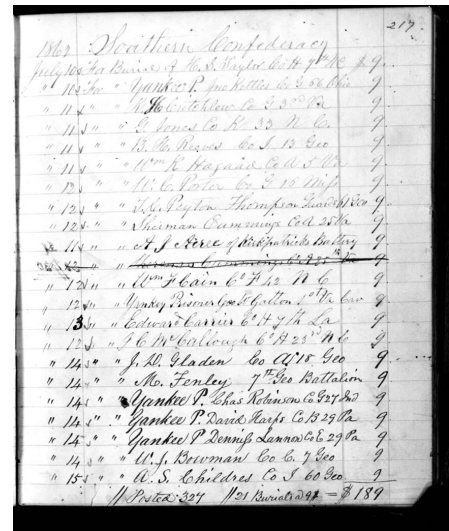 217
1863 Southern Confederacy
July 10 For Burial of H. S. Taylor Co H 7th NC $ 9
" 10 For " Yankee P. Jno Kettles Co G 56 Ohio 9
" 11 " " Co G 3rd Va 9
" 11 " " Jones Co K 33 N. C. 9
" 11 " " B. H. Reeves Co I 13 Geo 9
" 11 " " Wm R Co A 5 Va 9
" 12 " " W. C. Porter Co G 18 Miss 9
" 12 " " T. C. Peyton Thompson Geo 9
" 12 " " Sherman Cummings Co A 25 Va 9
" 11 " " A. J. Pierce of Kirkpatricks Battery 9
" 12 " " Co A 25th Va 9
" 12 " " Wm F Cain Co F 42 N C 9
" 12 " " Yankey Prisoner Geo W Gatton 1st Va Cav 9
" 13 " " Edward Carrier Co H 7th La 9
" 12 " " J C McCallough Co H 23rd N C 9
" 14 " " J. D. Gladen Co A 18 Geo 9
" 14 " " M. Fenley 7th Geo Battalion 9
" 14 " " Yankee P. Chas Robinson Co G 27 Ind 9
" 14 " " Yankee P. David Harps Co B 29 Pa 9
" 14 " " Yankee P. Dennis Lannon Co E 29 Pa 9
" 14 " " W. J. Bowman Co C. 7 Geo 9
" 15 " " A. S. Childres Co I 60 Geo 9
// Posted 327 // 21 Burials @ 9$ = $189